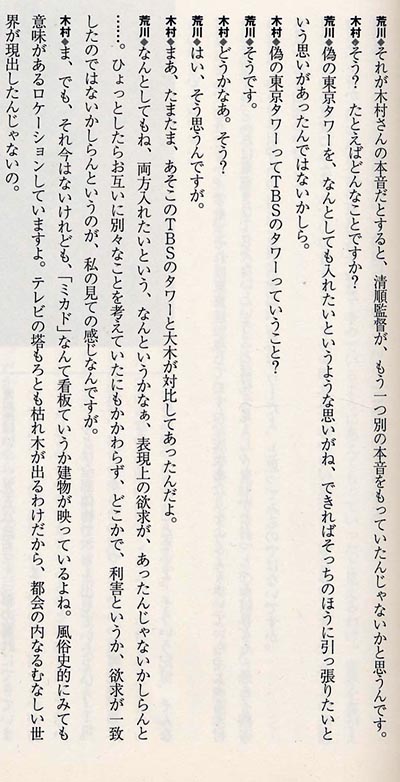 荒川◆それが木村さんの本音だとすると、清順監督が、もう一つ別の本音をもっていたんじゃないかと思うんです。
木村◆そう？　たとえばどんなことですか？
荒川◆偽の東京タワーを、なんとしても入れたいというような思いがね、できればそっちのほうに引っ張りたいと
いう思いがあったんではないかしら。
木村◆偽の東京タワーってＴＢＳのタワーっていうこと？
荒川◆そうです。
木村◆どうかなあ。そう？
荒川◆はい、そう思うんですが。
木村◆まあ、たまたま、あそこのＴＢＳのタワーと大木が対比してあったんだよ。
荒川◆なんとしてもね、両方入れたいという、なんというかなぁ、表現上の欲求が、あったんじゃないかしらんと
……。ひょっとしたらお互いに別々なことを考えていたにもかかわらず、どこかで、利害というか、欲求が一致
したのではないかしらんというのが、私の見ての感じなんですが。
木村◆ま、でも、それ今はないけれども、「ミカド」なんて看板ていうか建物が映っているよね。風俗史的にみても
意味があるロケーションしていますよ。テレビの塔もろとも枯れ木が出るわけだから、都会の内なるむなしい世
界が現出したんじゃないの。